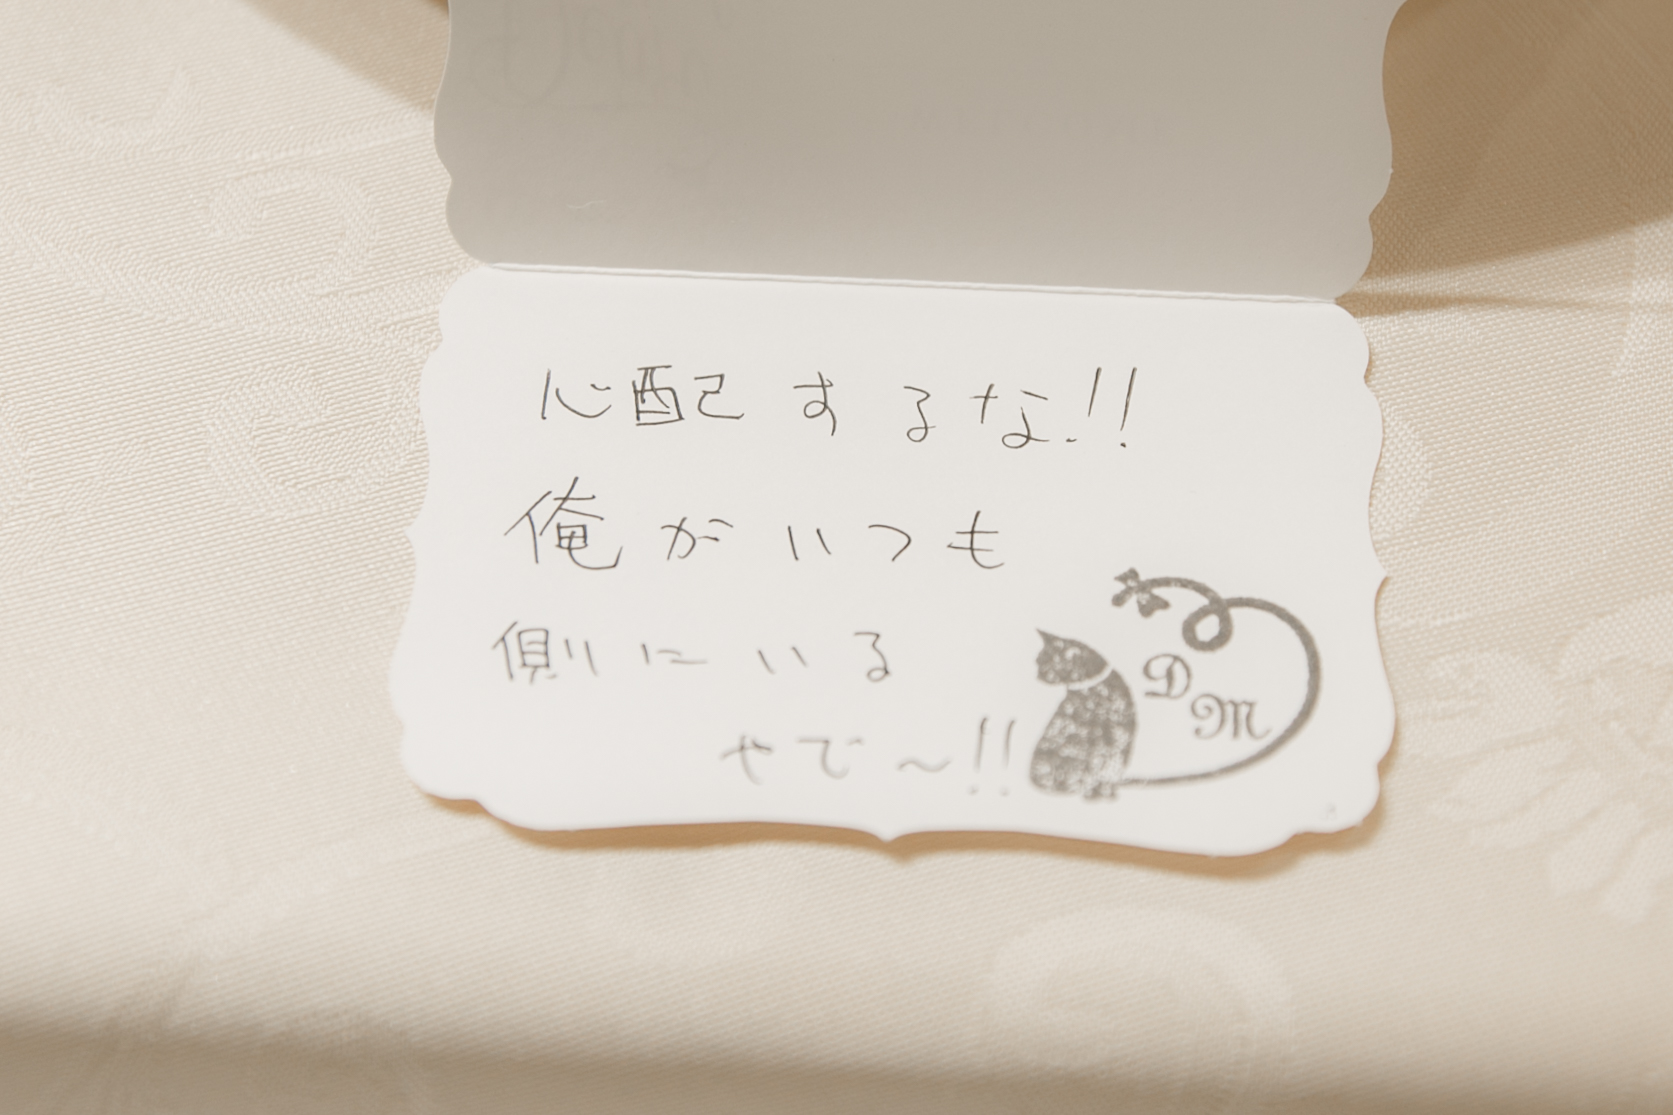 心配するな!!
俺がいつも
側にいる
やで〜!!
D
M